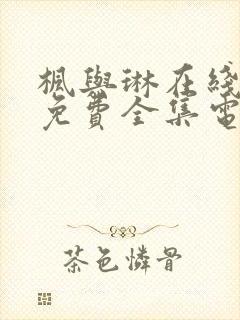 楓與琳在綫
免費全集電
茶色憐骨